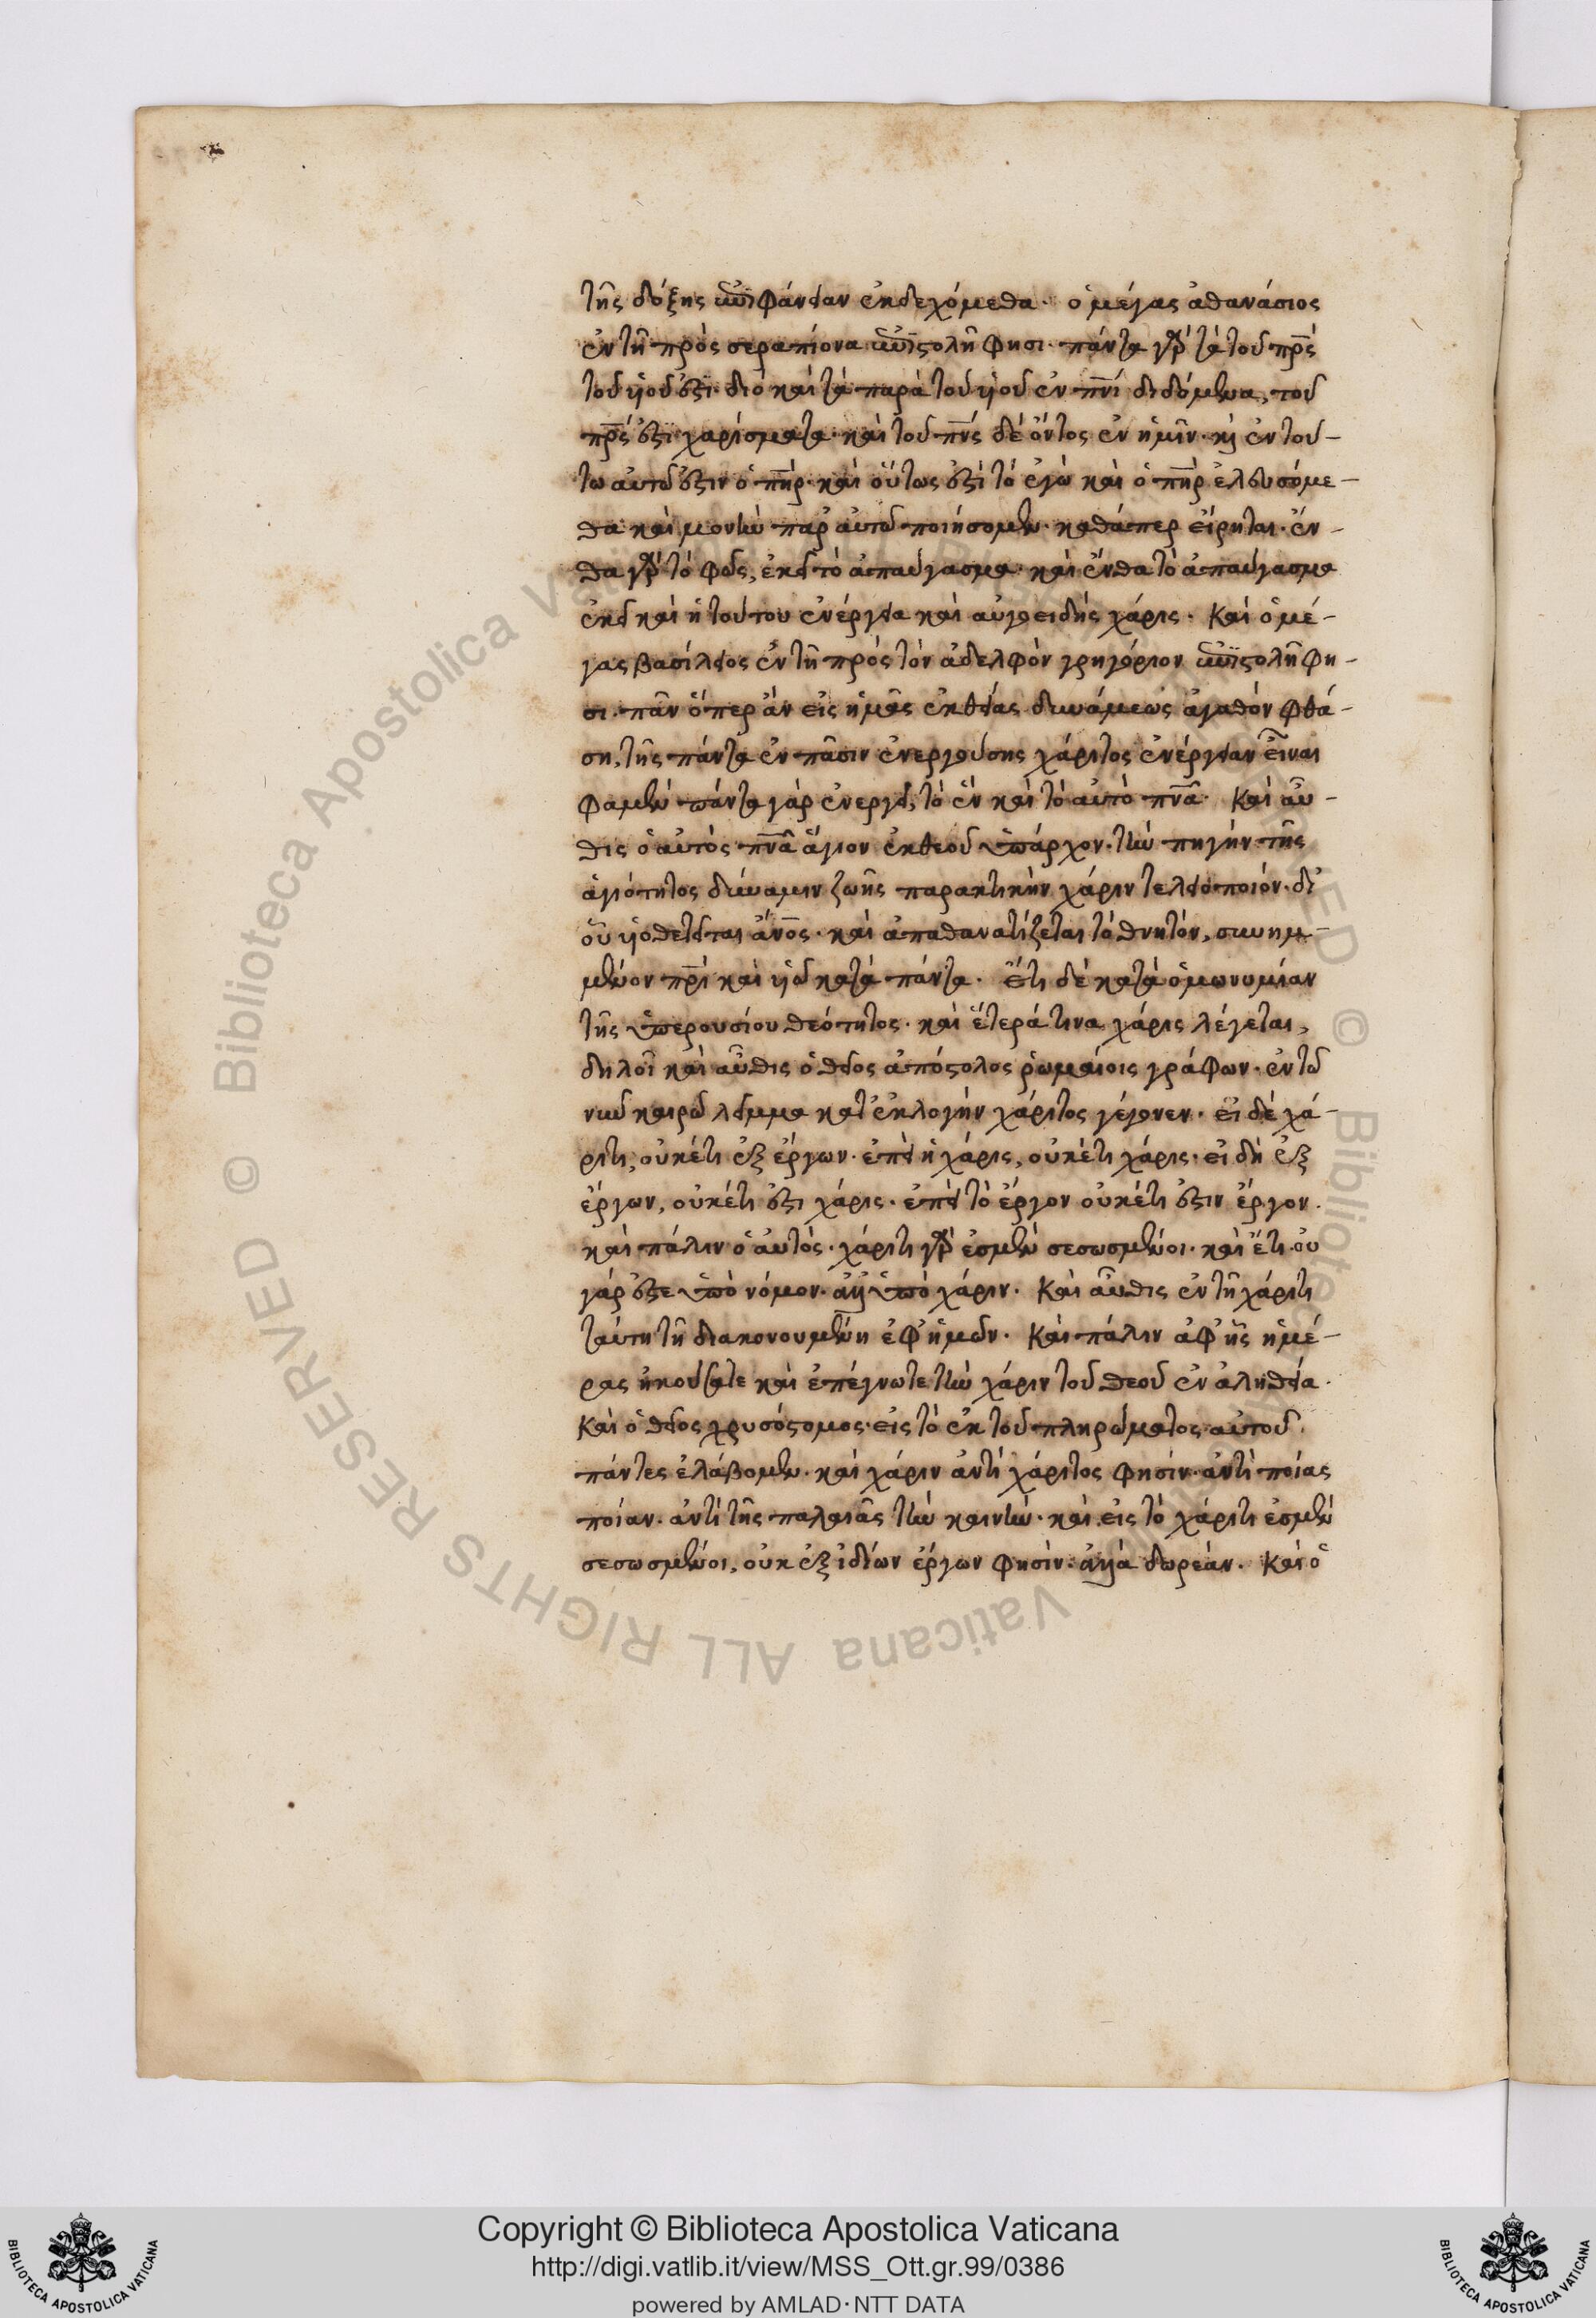 τῆς δόξης ἐπιφάνειαν ἐκδεχόμεθα· ὁ μέγας ἀθανάσιος
ἐν τῆ πρὸς σεραπίονα ἐπιστολῆ φησι· πάντα γὰρ τὰ τοῦ πρς
τοῦ υἱοῦ ἐστι· διὸ καὶ τὰ παρὰ τοῦ υἱοῦ ἐν πνι διδόμενα, τοῦ
πρς ἐστι χαρίσματα· καὶ τοῦ πνς δὲ ὄντος ἐν ἡμῖν· κὶ ἐν τού-
τω αὐτῶ ἐστιν ὁ πηρ· καὶ οὕτως ἐστὶ τὸ ἐγὼ καὶ ὁ πηρ ἐλευσόμε-
θα καὶ μονὴν παρ' αὐτῶ ποιήσομεν· καθάπερ εἴρηται· ἔν-
θα γὰρ τὸ φῶς, ἐκεῖ τὸ ἀπαύγασμα· καὶ ἔνθα τὸ ἀπαύγασμα
ἐκεῖ καὶ ἡ τούτου ἐνέργεια καὶ αὐγοειδὴς χάρις· Καὶ ὁ μέ-
γας βασίλειος ἐν τῆ πρὸς τὸν ἀδελφὸν γρηγόριον ἐπιστολῆ φη-
σι· πᾶν ὅπερ ἂν εἰς ἡμᾶς ἐκ θείας δυνάμεως ἀγαθὸν φθά-
ση, τῆς πάντα ἐν πᾶσιν ἐνεργούσης χάριτος ἐνέργειαν εἶναι
φαμὲν πάντα γὰρ ἐνεργεῖ, τὸ ἓν καὶ τὸ αὐτὸ πνα· Καὶ αὖ-
θις ὁ αὐτὸς πνα ἅγιον ἐκ θεοῦ ὑπάρχον· τὴν πηγὴν τῆς
ἁγιότητος δύναμιν ζωῆς παρακτικὴν χάριν τελειοποιόν· δι'
οὗ υἱοθετεῖται ἄνος· καὶ ἀπαθανατίζεται τὸ θνητόν, συνημ-
μένον πρὶ καὶ υἱῶ κατὰ πάντα· Ἔτι δὲ κατὰ ὁμωνυμίαν
τῆς ὑπερουσίου θεότητος· καὶ ἕτερά τινα χάρις λέγεται,
δηλοῖ καὶ αὖθις ὁ θεῖος ἀπόστολος ῥωμαίοις γράφων· ἐν τῶ
νῦν καιρῶ λεῖμμα κατ' ἐκλογὴν χάριτος γέγονεν· εἰ δὲ χά-
ριτι, οὐκέτι ἐξ ἔργων· ἐπεὶ ἡ χάρις, οὐκέτι χάρις· εἰ δὴ ἐξ
ἔργων, οὐκέτι ἐστι χάρις· ἐπεὶ τὸ ἔργον οὐκέτι ἐστιν ἔργον·
καὶ πάλιν ὁ αὐτός· χάριτι γὰρ ἐσμὲν σεσωσμένοι· καὶ ἔτι· οὐ
γάρ ἐστε ὑπὸ νόμον· ἀλλ' ὑπὸ χάριν· Καὶ αὖθις ἐν τῆ χάριτι
ταύτη τῆ διακονουμένη ἐφ' ἡμῶν· Καὶ πάλιν ἀφ' ἧς ἡμέ-
ρας ἠκούσατε καὶ ἐπέγνωτε τὴν χάριν τοῦ θεοῦ ἐν ἀληθεία·
Καὶ ὁ θεῖος χρυσόστομος· εἰς τὸ ἐκ τοῦ πληρώματος αὐτοῦ
πάντες ἐλάβομεν· καὶ χάριν ἀντὶ χάριτος φησίν· ἀντὶ ποίας
ποίαν· ἀντὶ τῆς παλαιᾶς τὴν καινήν· καὶ εἰς τὸ χάριτι ἐσμὲν
σεσωσμένοι, οὐκ ἐξ ἰδίων ἔργων φησίν· ἀλλὰ δωρεάν· Καὶ ὁ
© Biblioteca Apostolica Vaticana ALL RIGHTS RESERVED
Copyright © Biblioteca Apostolica Vaticana
http://digi.vatlib.it/view/MSS_Ott.gr.99/0386
powered by AMLAD·NTT DATA
BIBLIOTECA APOSTOLICA VATICANA
BIBLIOTECA APOSTOLICA VATICANA